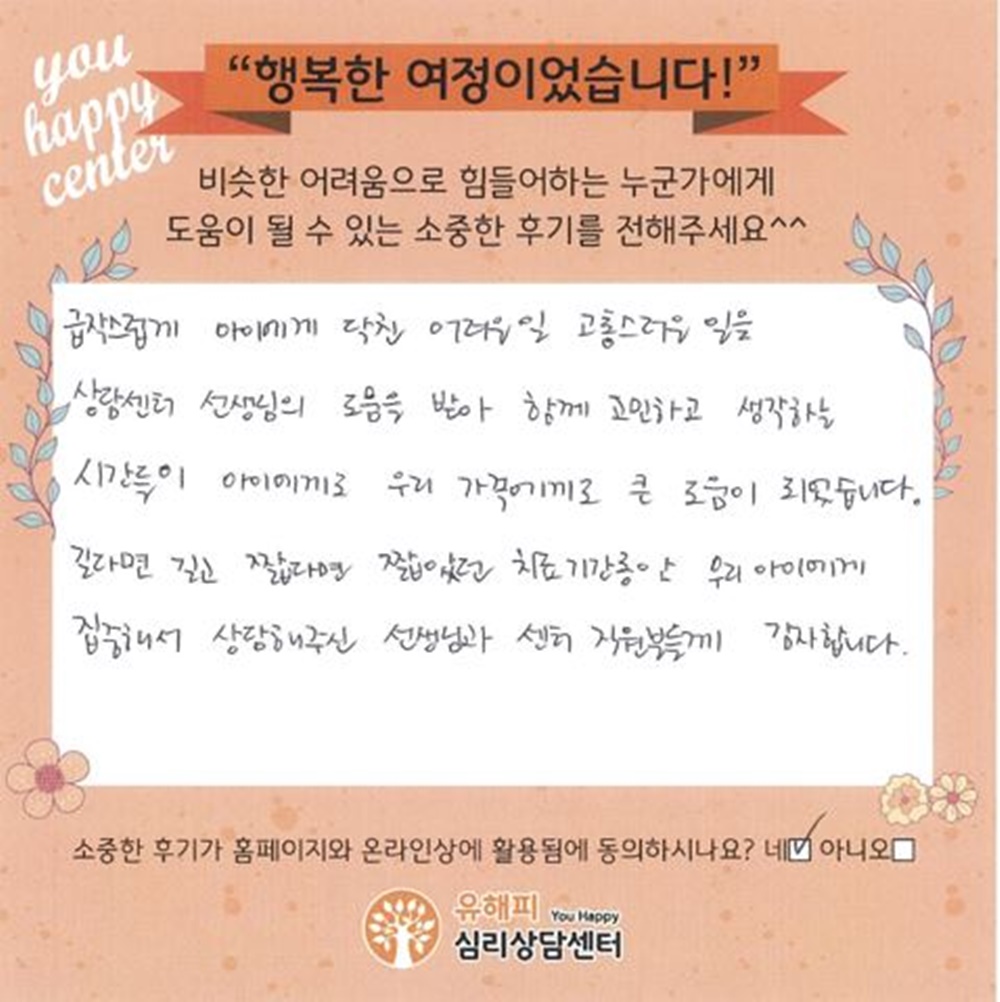 you
happy
center
“행복한 여정이었습니다!”
비슷한 어려움으로 힘들어하는 누군가에게
도움이 될 수 있는 소중한 후기를 전해주세요^^
급작스럽게 아이에게 닥친 어려운일 고통스러운 일을
상담센터 선생님의 도움을 받아 함께 고민하고 생각하는
시간들이 아이에게도 우리 가족에게도 큰 도움이 되었습니다.
길다면 길고 짧다면 짧았던 치료기간동안 우리 아이에게
집중해서 상담해주신 선생님과 센터 직원분들께 감사합니다.
소중한 후기가 홈페이지와 온라인상에 활용됨에 동의하시나요? 네☑ 아니오☐
유해피 You Happy
심리상담센터